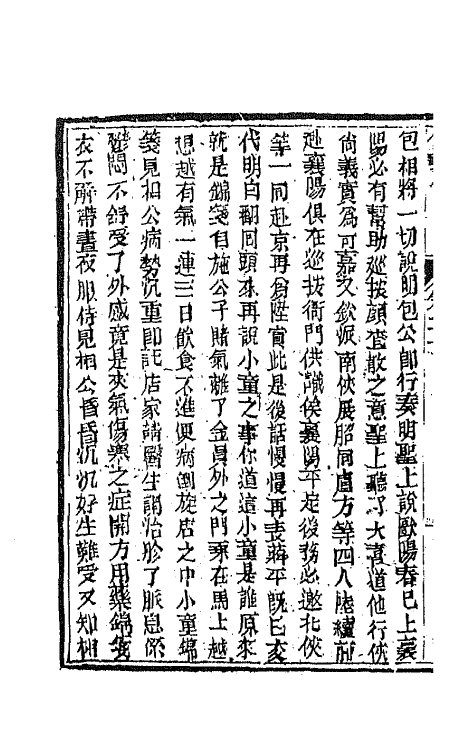 包相將一切說明包公即行奏明聖上說歐陽春已上襄
陽必有幫助巡按顏查散之意聖上聽了大喜道他行俠
尚義實爲可嘉又欽派南俠展昭同盧方等四人陸續前
赴襄陽俱在巡按衙門供職俟襄陽平定後務必邀北俠
等一同赴京再爲陞賞此是後話慢慢再表蔣平既已交
代明白翻回頭來再說小童之事你道這小童是誰原來
就是錦箋自施公子賭氣離了金員外之門乘在馬上越
想越有氣一連三日飲食不進便病倒旅店之中小童錦
箋見相公病勢沉重即託店家請醫生調治胗了脈息係
鬱悶不舒受了外感竟是夾氣傷寒之症開方用藥錦箋
衣不解帶晝夜服侍見相公昏昏沉沉好生難受又知相